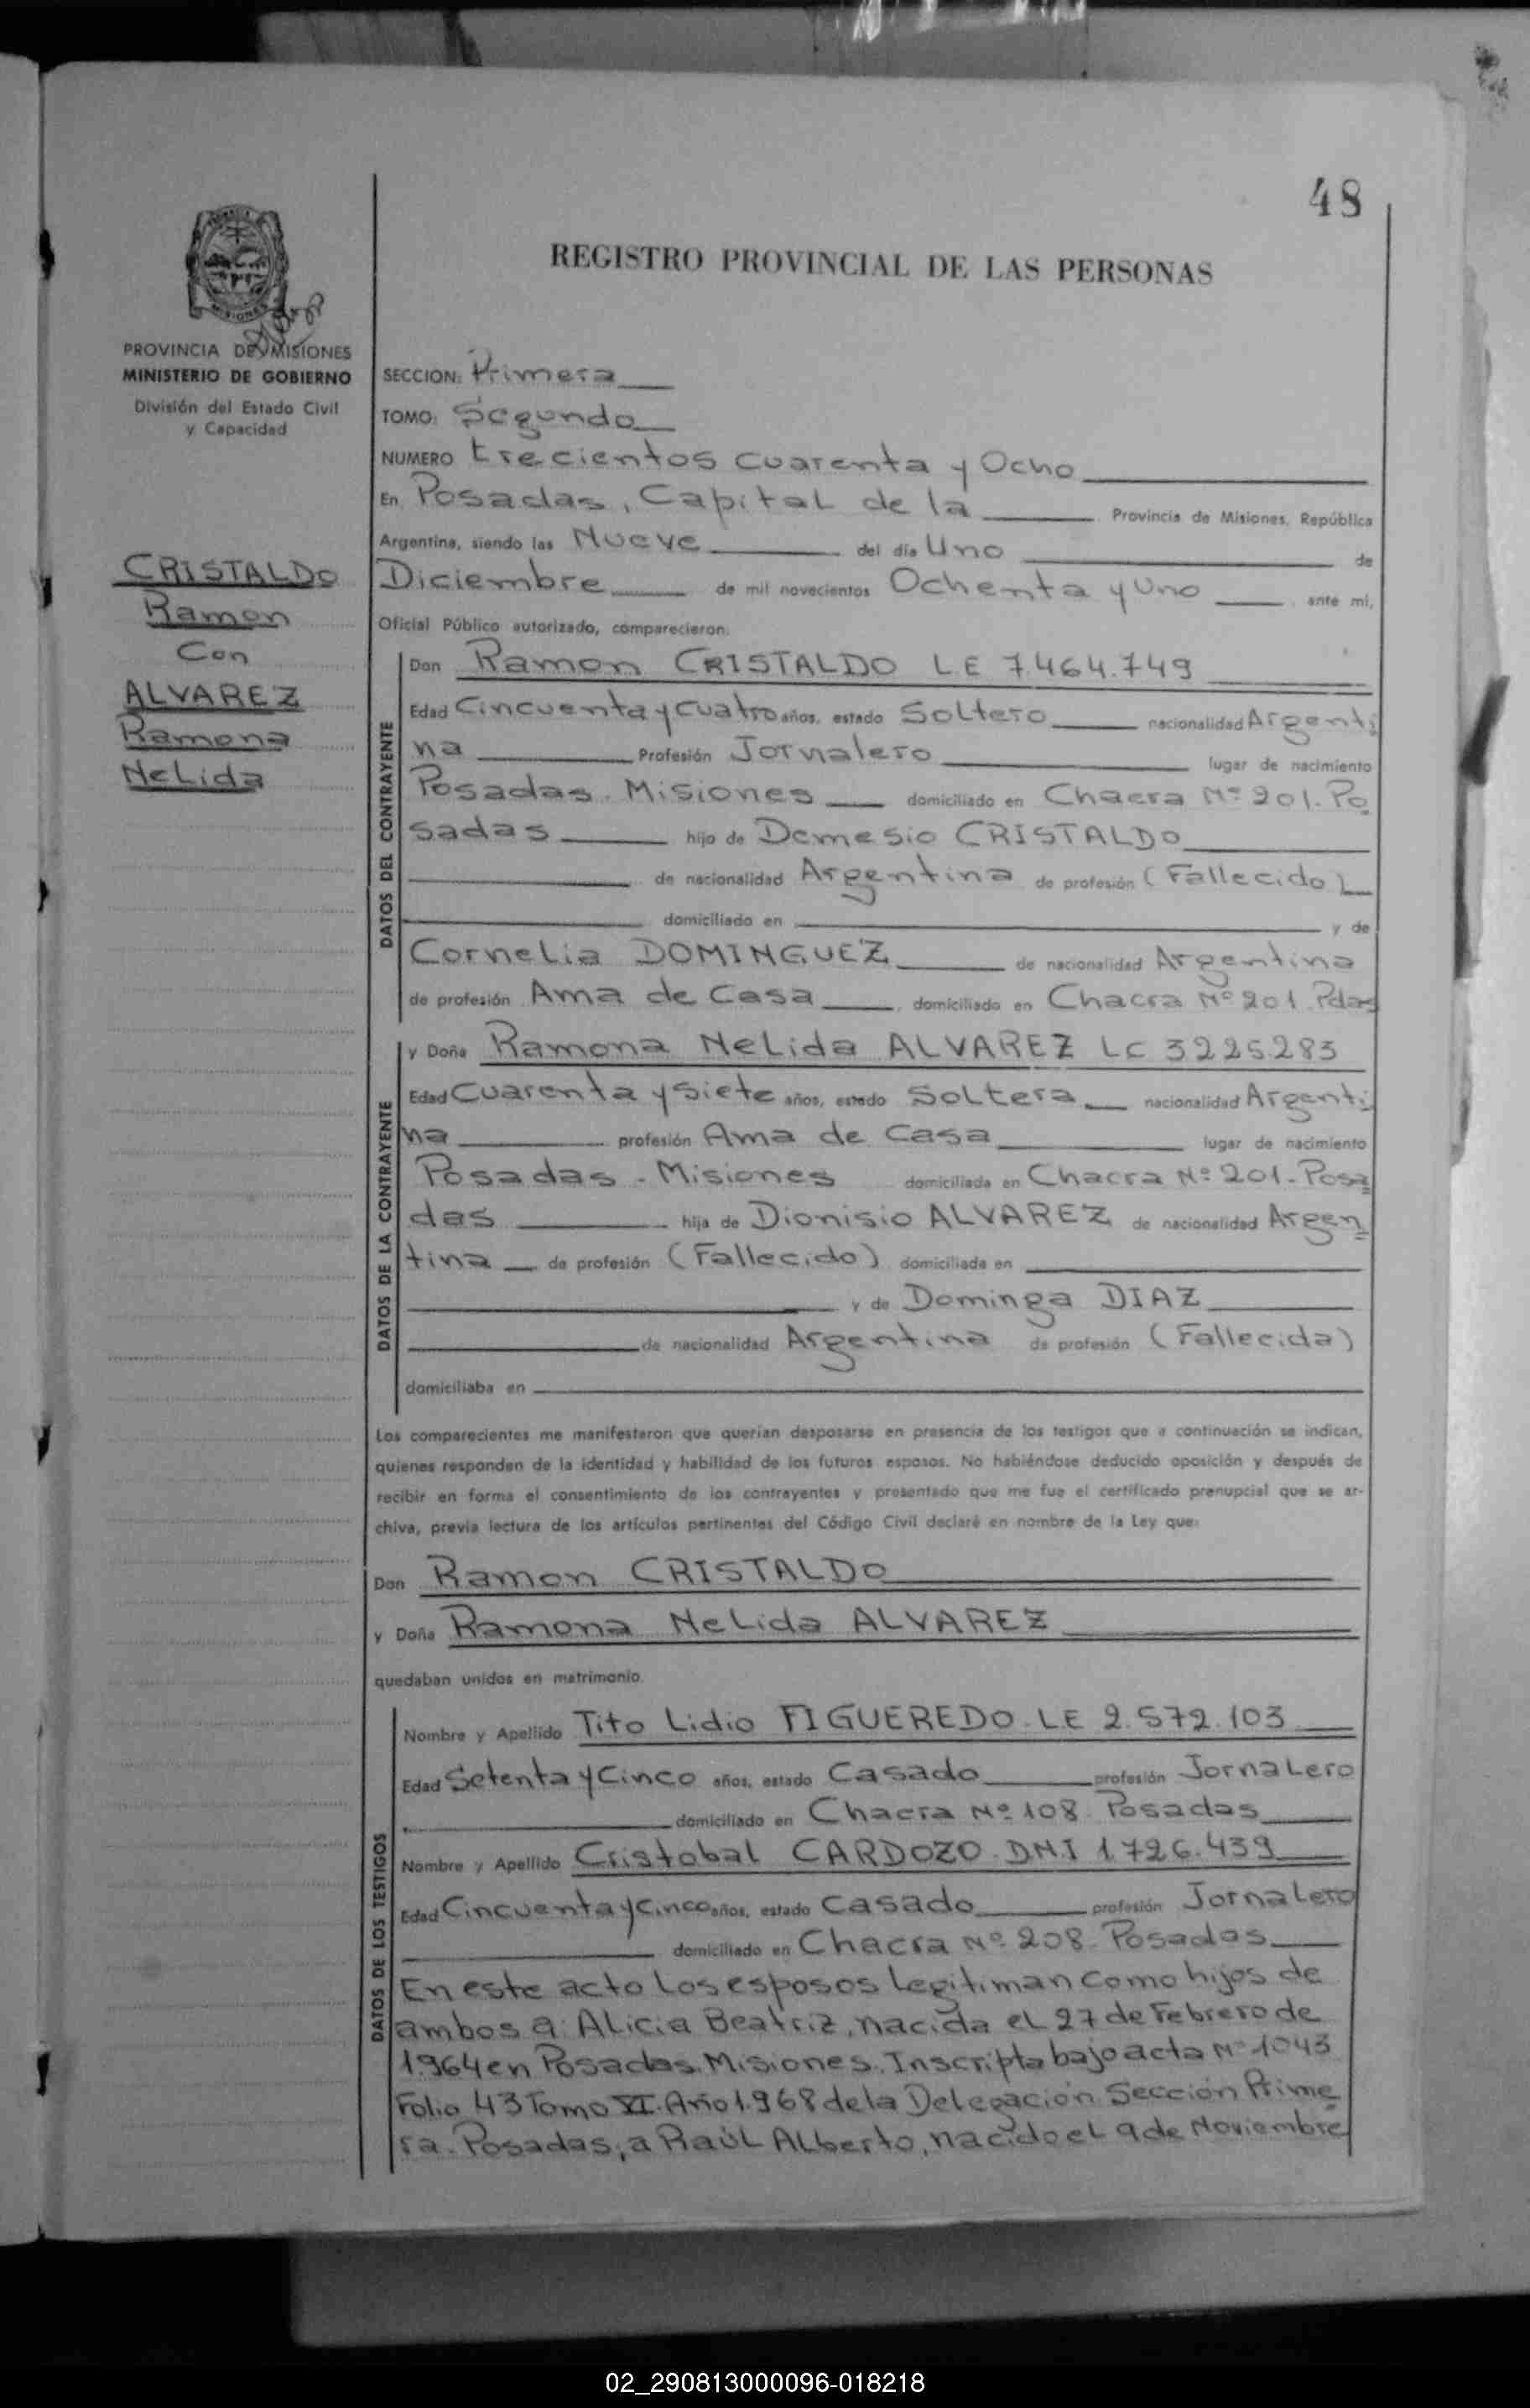 48
REGISTRO PROVINCIAL DE LAS PERSONAS
MISIONES
PROVINCIA DE MISIONES
MINISTERIO DE GOBIERNO
División del Estado Civil
y Capacidad
CRISTALDO
Ramon
Con
ALVAREZ
Ramona
Nelida
SECCION: Primera
TOMO: Segundo
NUMERO trecientos cuarenta y Ocho
En Posadas, Capital de la Provincia de Misiones, República
Argentina, siendo las Nueve del día Uno de
Diciembre de mil novecientos Ochenta y Uno ante mí,
Oficial Público autorizado, comparecieron:
DATOS DEL CONTRAYENTE
Don Ramon CRISTALDO L.E 7.464.749
Edad Cincuenta y Cuatro años, estado Soltero nacionalidad Argenti
na Profesión Jornalero lugar de nacimiento
Posadas. Misiones domiciliado en Chacra Nº 201. Po
sadas hijo de Demesio CRISTALDO
de nacionalidad Argentina de profesión (Fallecido)
domiciliado en y de
Cornelia DOMINGUEZ de nacionalidad Argentina
de profesión Ama de Casa, domiciliado en Chacra Nº 201 Pdas
DATOS DE LA CONTRAYENTE
y Doña Ramona Nelida ALVAREZ LC 3225.283
Edad Cuarenta y Siete años, estado Soltera nacionalidad Argenti
na profesión Ama de Casa lugar de nacimiento
Posadas - Misiones domiciliada en Chacra Nº 201 - Posa
das hija de Dionisio ALVAREZ de nacionalidad Argen
tina de profesión (Fallecido) domiciliada en
y de Dominga DIAZ
de nacionalidad Argentina de profesión (Fallecida)
domiciliaba en
Los comparecientes me manifestaron que querían desposarse en presencia de los testigos que a continuación se indican,
quienes responden de la identidad y habilidad de los futuros esposos. No habiéndose deducido oposición y después de
recibir en forma el consentimiento de los contrayentes y presentado que me fue el certificado prenupcial que se ar-
chiva, previa lectura de los artículos pertinentes del Código Civil declaré en nombre de la Ley que:
Don Ramon CRISTALDO
y Doña Ramona Nelida ALVAREZ
quedaban unidos en matrimonio.
DATOS DE LOS TESTIGOS
Nombre y Apellido Tito Lidio FIGUEREDO. LE 2.572.103
Edad Setenta y Cinco años, estado Casado profesión Jornalero
domiciliado en Chacra Nº 108 Posadas
Nombre y Apellido Cristobal CARDOZO. DNI 1.726.439
Edad Cincuenta y Cinco años, estado Casado profesión Jornalero
domiciliado en Chacra Nº 208 Posadas
En este acto Los esposos Legitiman Como hijos de
ambos a: Alicia Beatriz, nacida el 27 de Febrero de
1.964 en Posadas. Misiones. Inscripta bajo acta Nº 1043
Folio 43 Tomo VI. Año 1.968 de la Delegación Sección Prime
ra. Posadas; a Raúl Alberto, nacido el 9 de Noviembre
02_290813000096-018218